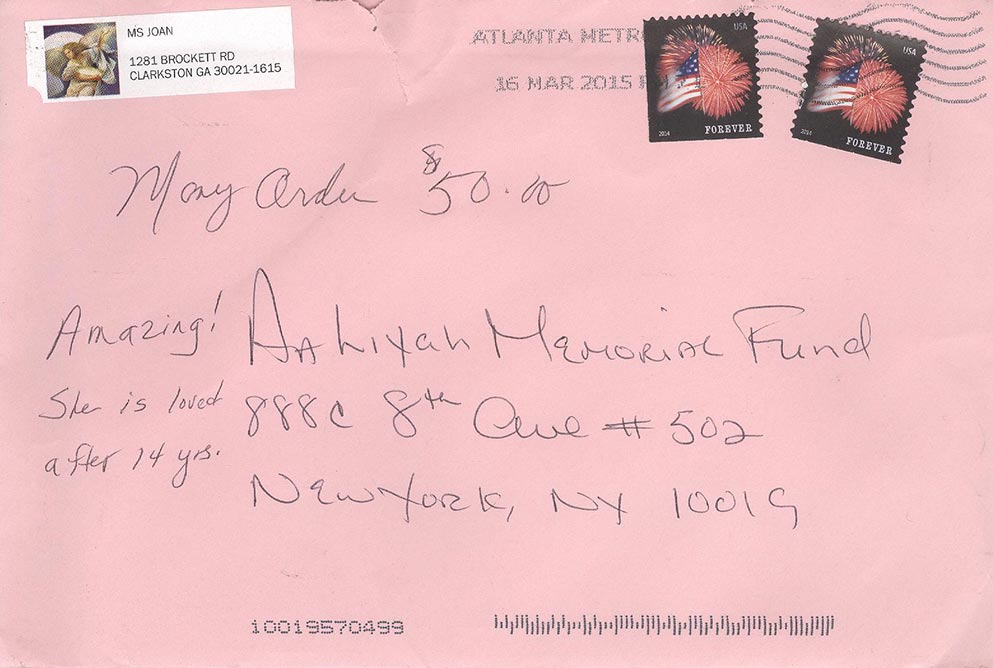 MS JOAN
1281 BROCKETT RD
CLARKSTON GA 30021-1615
ATLANTA METR
16 MAR 2015 P
USA
2014 FOREVER
USA
2014 FOREVER
Mony Order $50.00
Amazing!
She is loved
after 14 yrs.
Aaliyah Memorial Fund
888c 8th Ave # 502
New York, NY 10019
10019570499